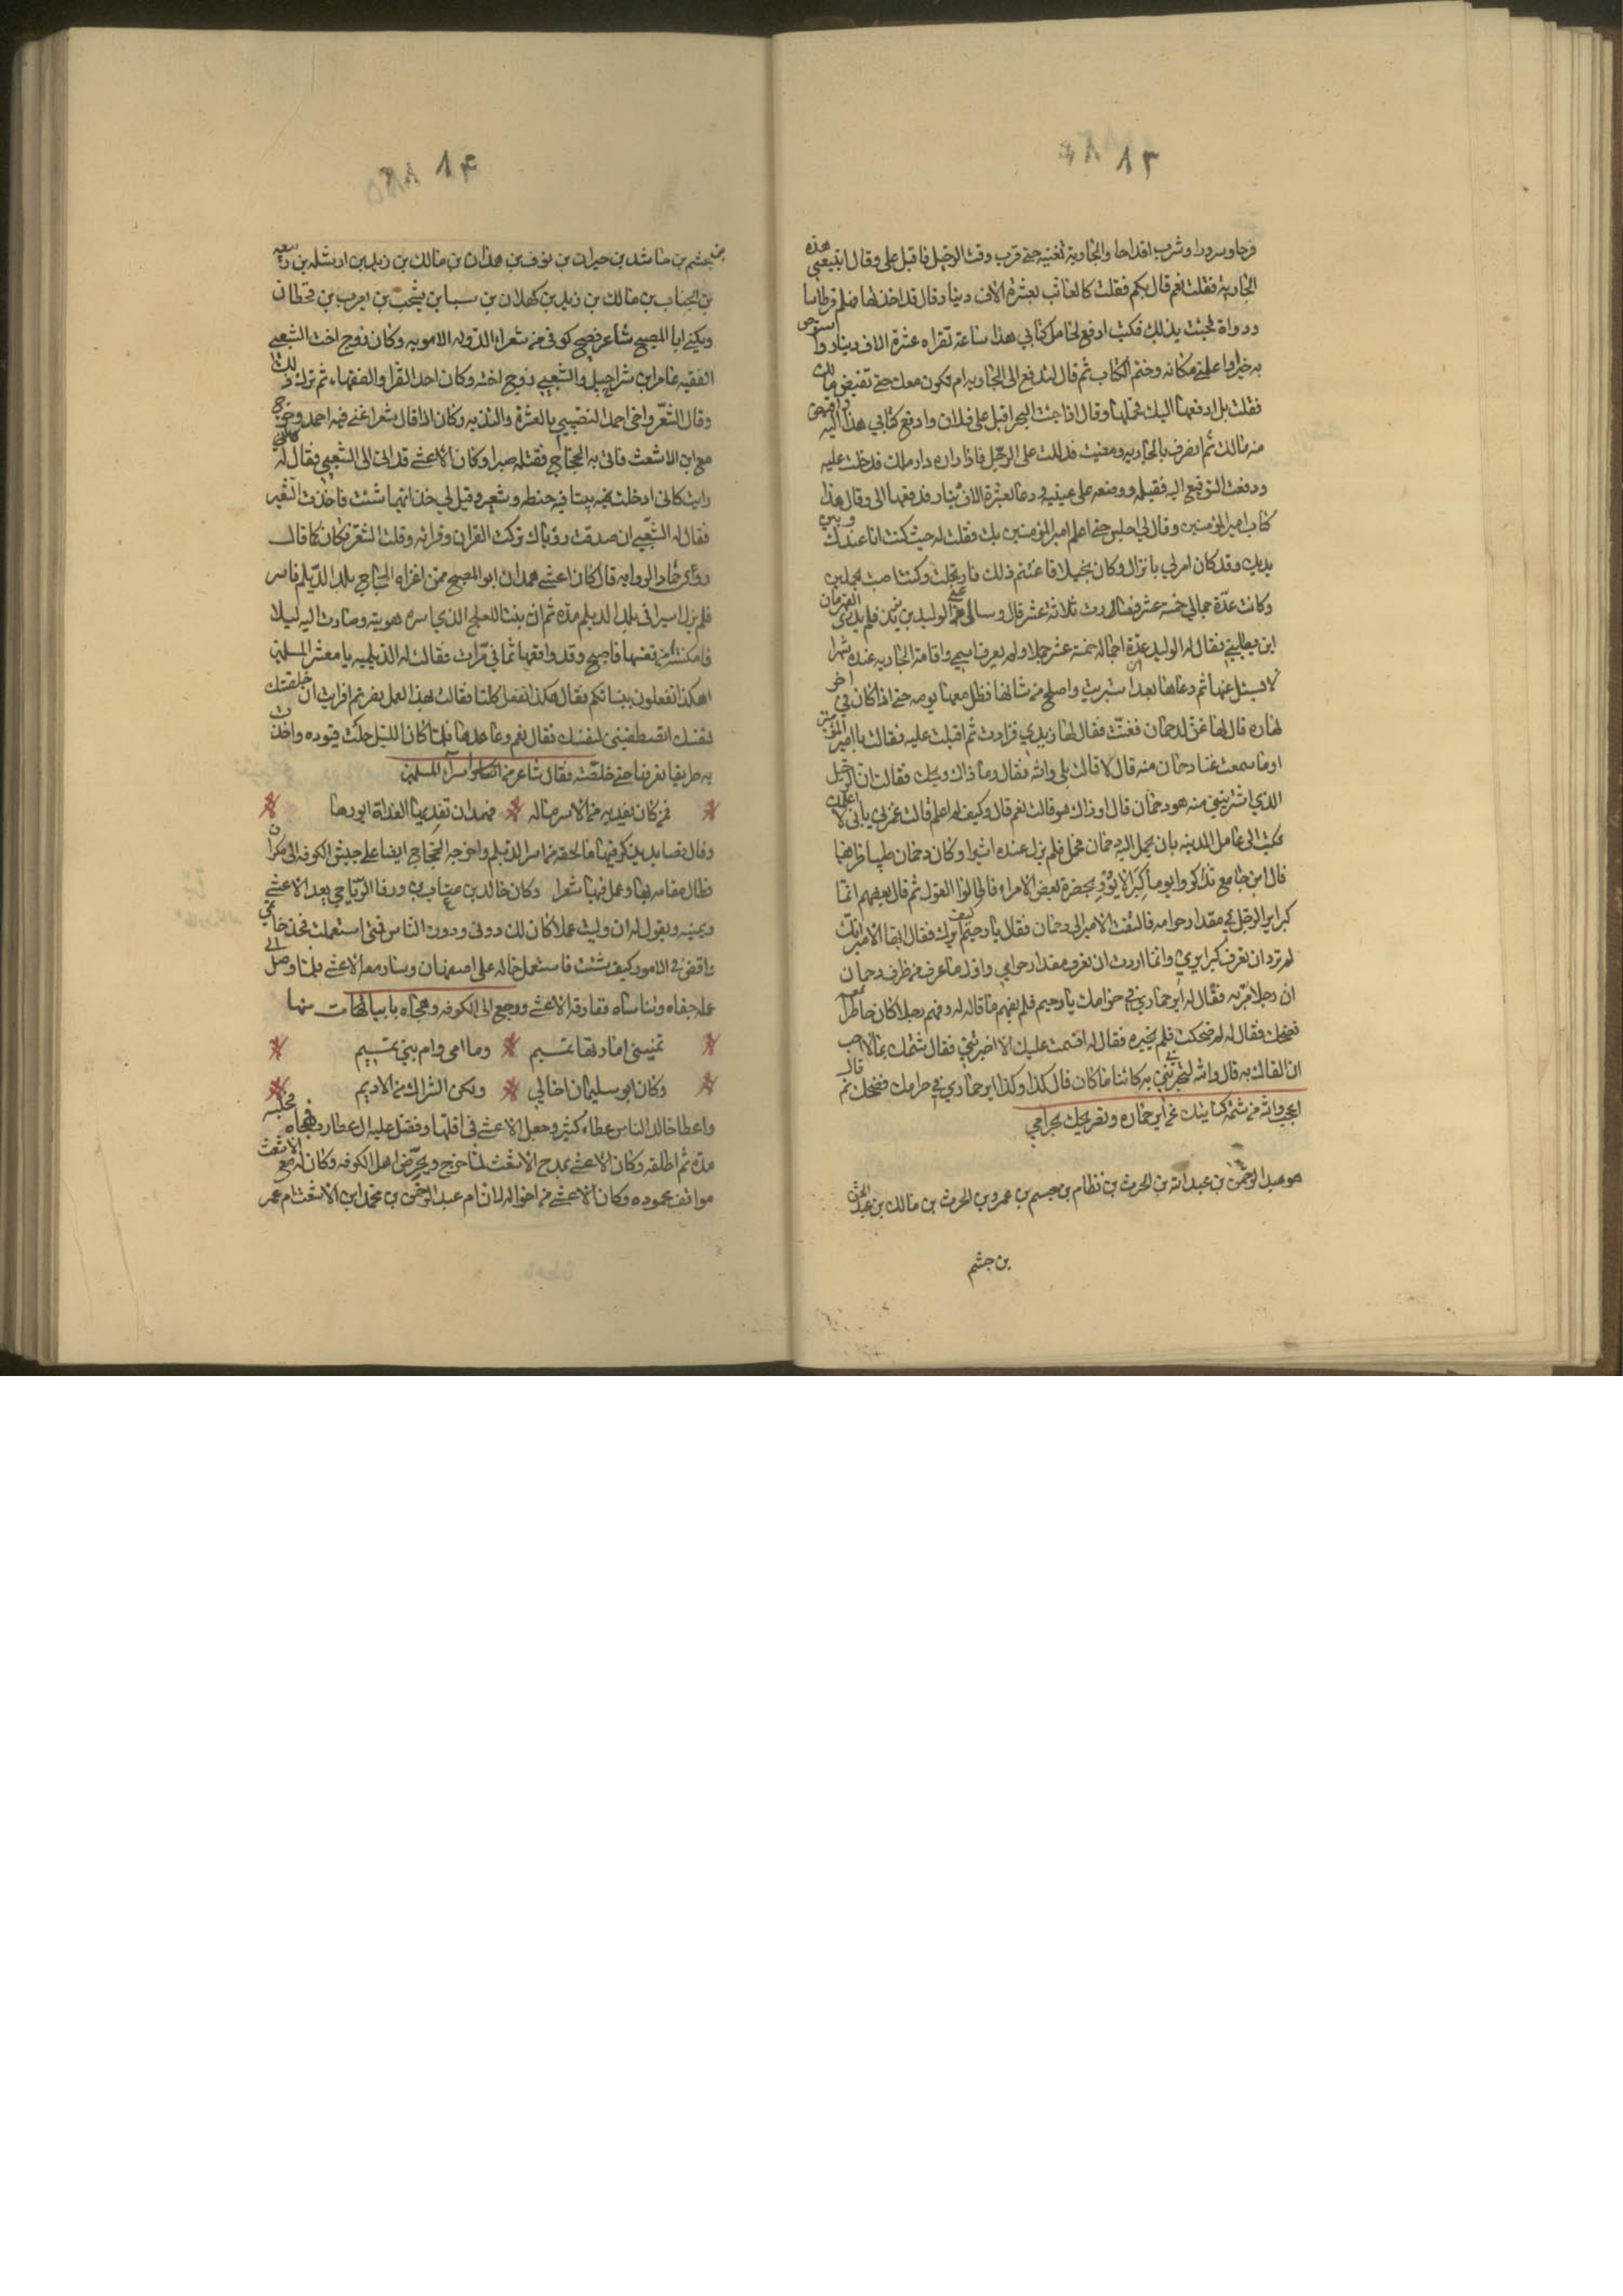 ١٣
فرحا وسرورا وشرب اقداحا والجارية تغنيه حتى قرب وقت الرحيل فاقبل على وقال اتبيعني هذه
الجارية فقلت نعم قال بكم فقلت كالعاتب بعشرة الاف دينار وقال قد اخذتها فهلم قرطاسا
ودواة فجئت بذلك فكتب ادفع لحامل كتابي هذا ساعة تقراه عشرة الاف دينار واستوص
به خيرا واعلمني مكانه وختم الكتاب ثم قال لتدفع الى الجارية ام تكون معك حتى تقبض مالك
فقلت بل ادفعها اليك فحملها وقال اذا جئت البحرا قبل على فلان وادفع كتابي هذا اليه واقبض
منه مالك ثم انصرف بالجارية ومضيت فدللت على الرجل فاذا داره دار ملك فدخلت عليه
ودفعت التوقيع اليه فقبله ووضعه على عينيه ودعا بعشرة الاف دينار فدفعها الى وقال هذا
كتاب امير المؤمنين وقال لي اجلس حتى اعلم امير المؤمنين بك فقلت له حيث كنت انا عندك وبين
يديك وقد كان امر لي بانزال وكان بخيلا فاغتنم ذلك فارتحلت وكنت اصبت بجملين
وكانت عدة جمالي خمسة عشر فصارت ثلاثة عشر قال وسال عني الوليد بن يزيد فلم يدر القهرمان
اين يطلبني فقال له الوليد عدة اجماله خمسة عشر جملا ولم يعرف اسمي واقامت الجارية عنده شهرا
لا يسئل عنها ثم دعاها بعد ان استبريت واصلح من شانها فظل معها يومه حتى اذا كان في اخر
نهاره قال لها غني لدحمان فغنت فقال لها زيدي فزادت ثم اقبلت عليه فقالت يا امير المؤمنين
اوما سمعت غنا دحمان منه قال لا قالت بلى والله فقال وما ذاك ويلك فقالت ان الرجل
الذي اشتريتني منه هو دحمان قال اوذاك هو قالت نعم قال وكيف لم اعلم قالت غمزني باني لا اعلمك
فكتب الى عامل المدينة بان يحمل اليه دحمان فحمل فلم يزل عنده اثيرا وكان دحمان طيبا ظريفا
قال ابن جامع تذاكروا يوما كبر الايور بحضرة بعض الامراء فاطالوا القول ثم قال بعضهم انما
كبر اير الرجل في مقدار حر امه فالتفت الامير الى دحمان فقال يا دحيم كيف ايرك فقال ايها الامير انك
لم ترد ان تعرف كبر ايري وانما اردت ان تعرف مقدار حر امي واول ما عرف من ظرف دحمان
ان رجلا مر به فقال له اير حماري في حر امك يا دحيم فلم يفهم ما قاله له وفهم رجلا كان حاضرا معه
فضحك فقال له لم ضحكت فلم يخبره فقال له اقسمت عليك الا اخبرتني فقال شتمك بما لا احب
ان القاك به قال والله لتخبرني به كائنا ما كان قال كذا وكذا اير حماري في حر امك فضحك ثم قال
اعجب والله من شتمه كنايتك عن اير حماره وتصريحك بحر امي
هو عبد الرحمن بن عبد الله بن الحرث بن نظام بن جسم بن عمرو بن الحرث بن مالك بن عبد الحر
بن جشم
١٤
بن جشم بن حاشد بن حيران بن نوف بن همدان بن مالك بن زيد بن اوسله بن ربيعه
بن الجناب بن مالك بن زيد بن كهلان بن سبا بن يشجب بن يعرب بن قحطان
ويكنى ابا المصبح شاعر فصيح كوفي من شعراء الدوله الامويه وكان زوج اخت الشعبي
الفقيه عامر ابن شراحيل والشعبي زوج اخته وكان احد القرا والفقهاء ثم ترك ذلك
وقال الشعر واخى احد النصيبي بالعشرة والبلديه وكان اذا قال شعرا غنى فيه احمد وخرج
مع ابن الاشعث فاتى به الحجاج فقتله صبرا وكان الاعشى قد اتى الى الشعبي فقال له
رايت كاني ادخلت بيتا فيه حنطه وشعير وقيل لي خذ ايهما شئت فاخذت الشعير
فقال له الشعبي ان صدقت رؤياك تركت القران وقراته وقلت الشعر فكان كما قال
روى حماد الروايه قال كان اعشى همدان ابو المصبح ممن اغزاه الحجاج بلد الديلم فاسر
فلم يزل اسيرا في بلد الديلم مدة ثم ان بنتا للعلج الذي اسره هويته وصارت اليه ليلا
فامكنته من نفسها فاصبح وقد واقعها ثماني مرات فقالت له الديلميه يا معشر المسلمين
اهكذا تفعلون بنسائكم فقال هكذا نفعل كلنا فقالت بهذا العمل نصرتم افرايت ان خلصتك
نفسك اتصطفيني لنفسك فقال نعم وعاهدها فلما كان الليل حلت قيوده واخذت
به طريقا تعرفها حتى خلصته فقال شاعر من اسراء المسلمين
فمن كان يفديه من الاسر ماله فهمدان تفديها الغداة ايورها
وقال قصايد يذكر فيها ما لحقه من اسر الديلم واخرجه الحجاج ايضا على جيش الكوفه الى مكران
فطال مقامه بها وعمل فيها شعرا وكان خالد بن عتاب بن ورقا الرياحي يعد الاعشى
ويمنيه ويقول له ان وليت عملا كان لك دوني ودون الناس فمتى استعملت فخذ خاتمي
واقض في الامور كيف شئت فاستعمل خالد على اصبهان وسار معه الاعشى فلما وصل الى
عمله جفاه وتناساه ففارقه الاعشى ورجع الى الكوفه وهجاه بابيات منها
تمنيني امارتها تميم وما امى وام بني تميم
وكان ابو سليمان اخا لي ولكن الشراك من الاديم
واعطا خالد الناس عطاء كثير وجعل الاعشى في اقلها وفضل عليه ال عطارد فهجاه فحبسه
مدة ثم اطلقه وكان الاعشى يمدح الاشعث لما خرج ويحرض اهل الكوفه وكان له مع الاشعث
مواقف محموده وكان الاعشى من اخواله لان ام عبد الرحمن بن محمد ابن الاشعث ام عمر